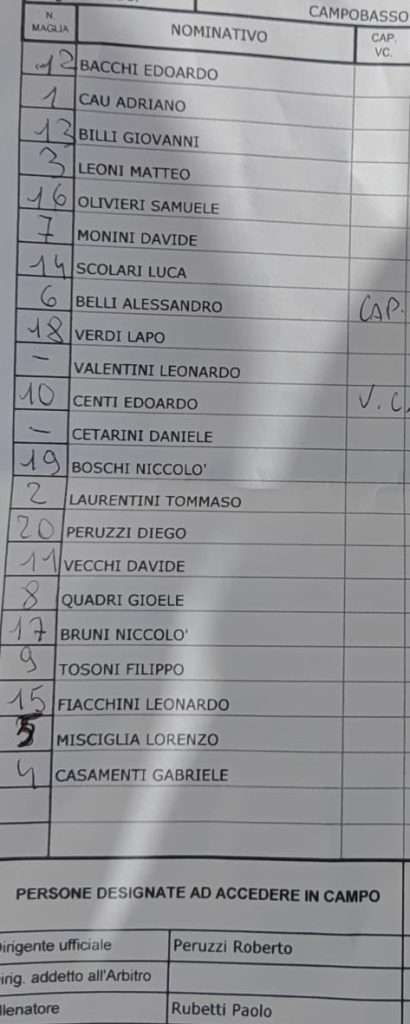 CAMPOBASSO
N. MAGLIA NOMINATIVO CAP. VC.
12 BACCHI EDOARDO
1 CAU ADRIANO
13 BILLI GIOVANNI
3 LEONI MATTEO
16 OLIVIERI SAMUELE
7 MONINI DAVIDE
14 SCOLARI LUCA
6 BELLI ALESSANDRO CAP.
18 VERDI LAPO
— VALENTINI LEONARDO
10 CENTI EDOARDO V.C.
— CETARINI DANIELE
19 BOSCHI NICCOLO'
2 LAURENTINI TOMMASO
20 PERUZZI DIEGO
11 VECCHI DAVIDE
8 QUADRI GIOELE
17 BRUNI NICCOLO'
9 TOSONI FILIPPO
15 FIACCHINI LEONARDO
5 MISCIGLIA LORENZO
4 CASAMENTI GABRIELE
PERSONE DESIGNATE AD ACCEDERE IN CAMPO
irigente ufficiale Peruzzi Roberto
irig. addetto all'Arbitro
llenatore Rubetti Paolo